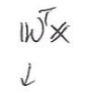 𝕎ᵀ𝕏
↓